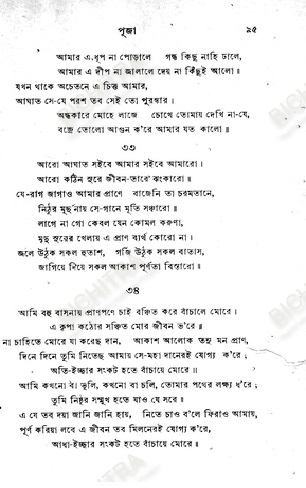 পূজা ৯৫
আমার এ ধূপ না পোড়ালে গন্ধ কিছু নাহি ঢালে,
আমার এ দীপ না জ্বালালে দেয় না কিছুই আলো॥
যখন থাকে অচেতনে এ চিত্ত আমার,
আঘাত সে-যে পরশ তব সেই তো পুরস্কার।
অন্ধকারে মোহে লাজে চোখে তোমায় দেখি না-যে,
বজ্রে তোলো আগুন ক'রে আমার যত কালো॥
৩৩
আরো আঘাত সইবে আমার সইবে আমারো।
আরো কঠিন সুরে জীবন-তারে ঝংকারো॥
যে-রাগ জাগাও আমার প্রাণে বাজেনি তা চরমতানে,
নিঠুর মূর্ছনায় সে-গানে মূর্তি সঞ্চারো॥
লাগে না গো কেবল যেন কোমল করুণা,
মৃদু সুরের খেলায় এ প্রাণ ব্যর্থ কোরো না।
জ্বলে উঠুক সকল হুতাশ, গর্জি উঠুক সকল বাতাস,
জাগিয়ে দিয়ে সকল আকাশ পূর্ণতা বিস্তারো॥
৩৪
আমি বহু বাসনায় প্রাণপণে চাই বঞ্চিত করে বাঁচালে মোরে।
এ কৃপা কঠোর সঞ্চিত মোর জীবন ভ'রে॥
না চাহিতে মোরে যা করেছ দান, আকাশ আলোক তনু মন প্রাণ,
দিনে দিনে তুমি নিতেছ আমায় সে-মহা দানেরই যোগ্য ক'রে;
অতি-ইচ্ছার সংকট হতে বাঁচায়ে মোরে॥
আমি কখনো বা ভুলি, কখনো বা চলি, তোমার পথের লক্ষ্য ধ'রে;
তুমি নিষ্ঠুর সম্মুখ হতে যাও যে সরে॥
এ যে তব দয়া জানি জানি হায়, নিতে চাও ব'লে ফিরাও আমায়,
পূর্ণ করিয়া লবে এ জীবন তব মিলনেরই যোগ্য ক'রে,
আধা-ইচ্ছার সংকট হতে বাঁচায়ে মোরে॥
BICHITRA